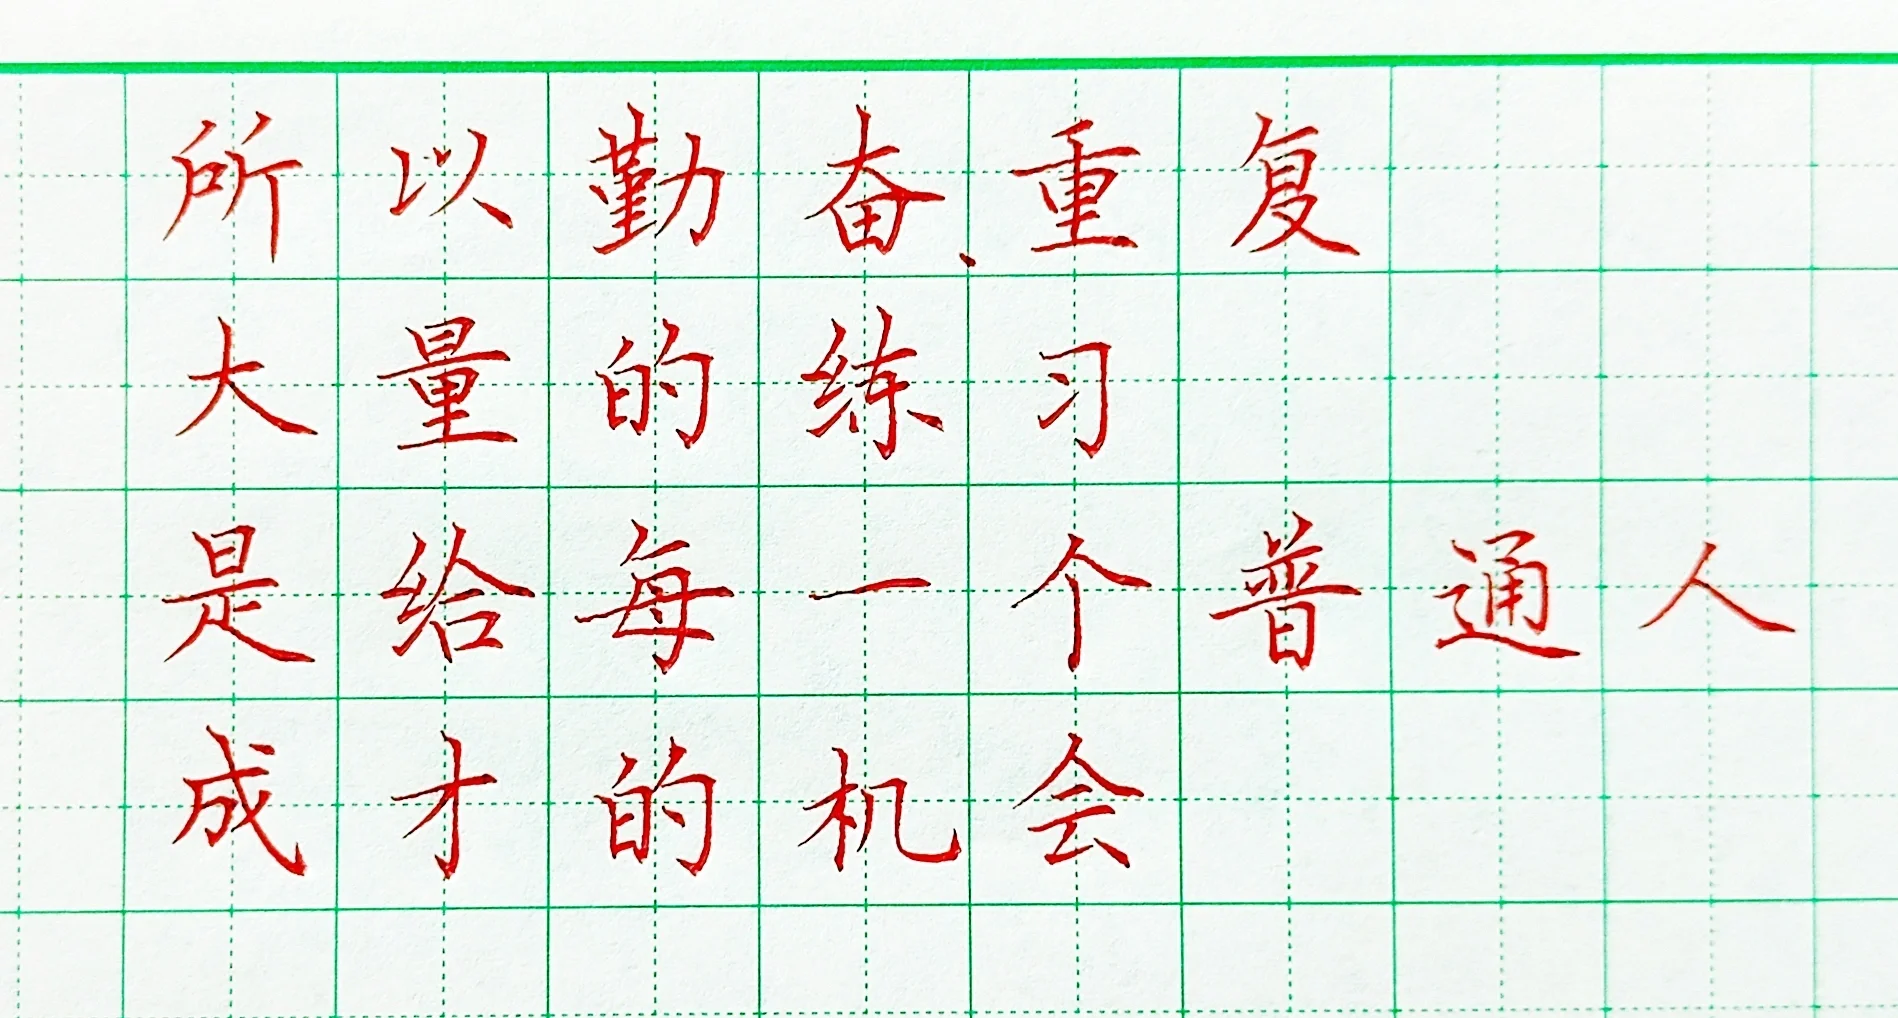 所以勤奋、重复
大量的练习
是给每一个普通人
成才的机会